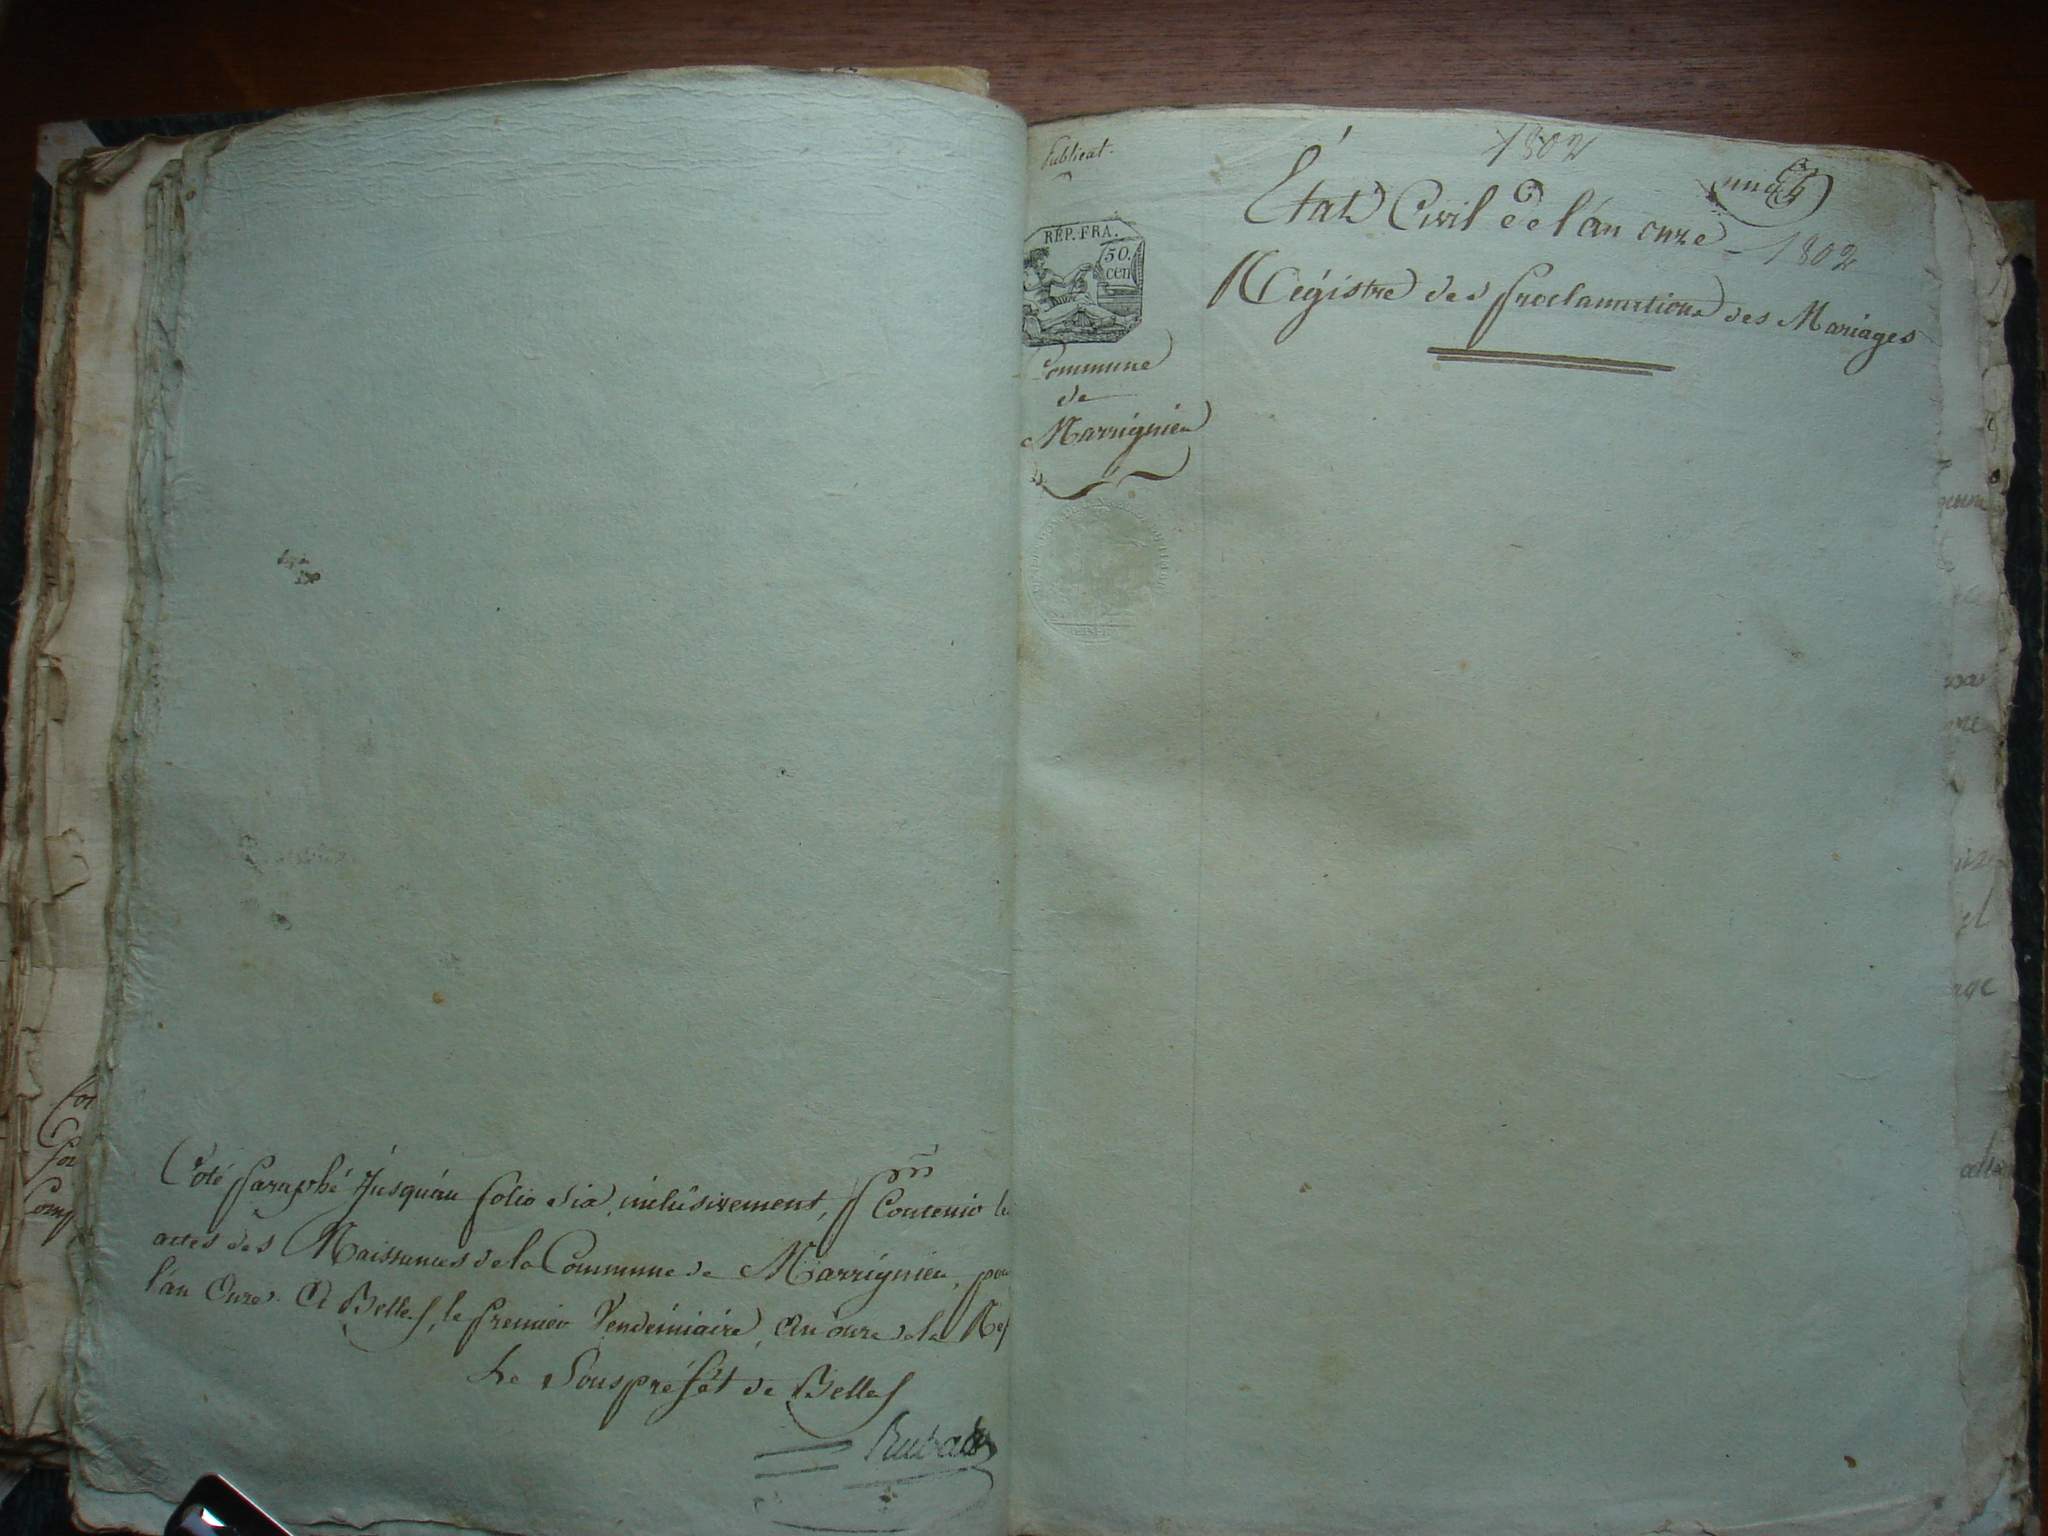 Coté Paraphé Jusqu'au folio dix inclusivement, Pr Contenir les
actes des Naissances de la Commune de Marrignieu, pour
l'an Onze. A Belley, le Premier Vendémiaire, An onze de la Rep
Le Souspréfêt de Belley
Rubat
Publicat.
RÉP. FRA.
50.
cen
Commune
de
Marrignieu
1802
État Civil de l'an onze - 1802
Régistre des Proclamations des Mariages